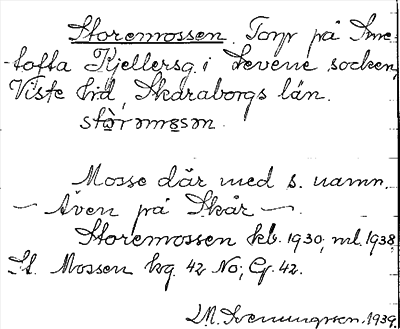 Storemossen. Torp på Sme-
-tofta Kjellersg. i Levene socken,
Viste hd, Skaraborgs län.
Mosse där med s. namn.
— Även på Skår —.
Storemossen kb. 1930, ml. 1938.
St. Mossen kg. 42 No; Cg. 42.
1939.